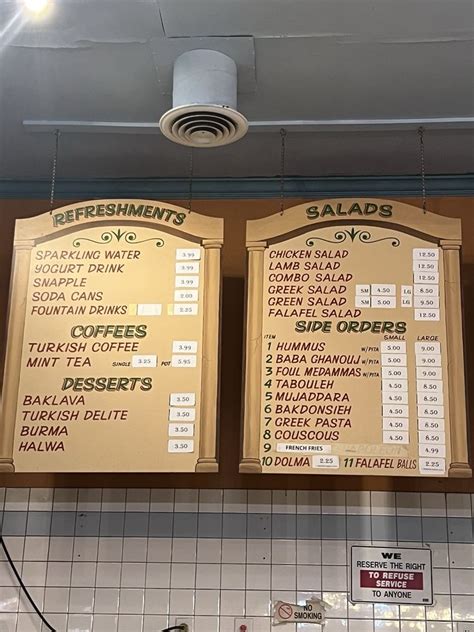 REFRESHMENTS
SPARKLING WATER 3.99
YOGURT DRINK 3.99
SNAPPLE 3.99
SODA CANS 2.00
FOUNTAIN DRINKS 2.25
COFFEES
TURKISH COFFEE 3.99
MINT TEA SINGLE 3.25 POT 5.95
DESSERTS
BAKLAVA 3.50
TURKISH DELITE 3.50
BURMA 3.50
HALWA 3.50
SALADS
CHICKEN SALAD 12.50
LAMB SALAD 12.50
COMBO SALAD 12.50
GREEK SALAD SM 4.50 LG 8.50
GREEN SALAD SM 5.00 LG 9.50
FALAFEL SALAD 12.50
SIDE ORDERS
ITEM SMALL LARGE
1 HUMMUS W/PITA 5.00 9.00
2 BABA GHANOUJ W/PITA 5.00 9.00
3 FOUL MEDAMMAS W/PITA 5.00 9.00
4 TABOULEH 4.50 8.50
5 MUJADDARA 4.50 8.50
6 BAKDONSIEH 4.50 8.50
7 GREEK PASTA 4.50 8.50
8 COUSCOUS 4.50 8.50
9 FRENCH FRIES 4.99
10 DOLMA 2.25 11 FALAFEL BALLS 2.25
WE
RESERVE THE RIGHT
TO REFUSE
SERVICE
TO ANYONE
NO
SMOKING